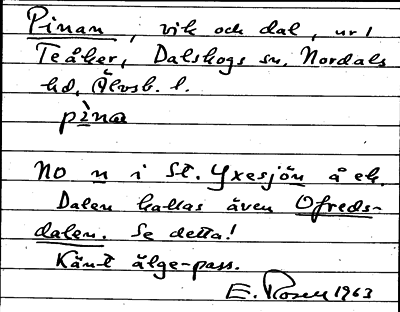 Pinan, vik och dal, ur 1
Teåker, Dalskogs sn, Nordals
hd, Älvsb. l.
pìna
No n i St. Yxesjön å ek.
Dalen kallas även Ofreds-
dalen. Se detta!
Känt älge-pass.
E. Rosen 1963